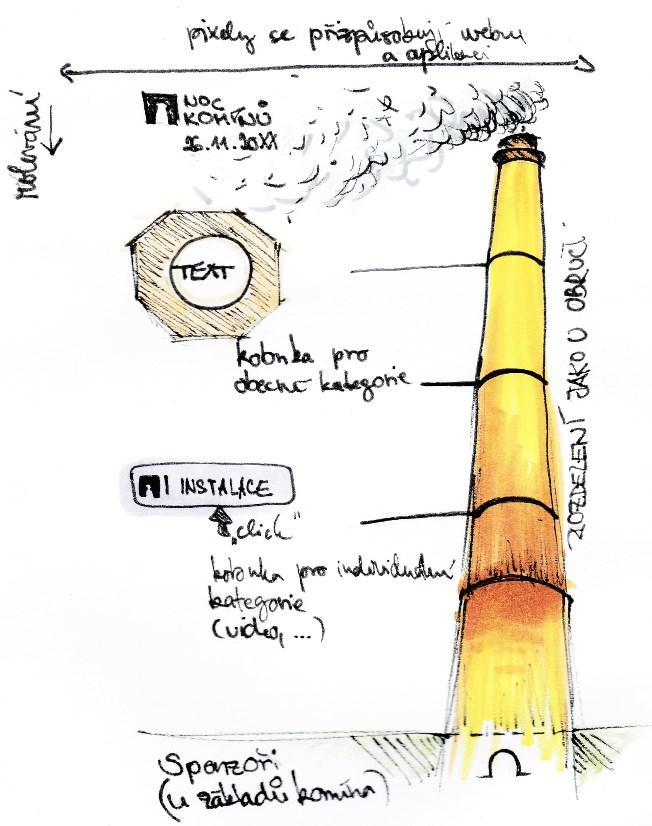 pixely se přizpůsobují webu
a aplikaci
rolování
NOC
KOMÍNŮ
26.11.20XX
TEXT
kolonka pro
obecné kategorie
ROZDĚLENÍ JAKO U OBRUČÍ
INSTALACE
„click“
kolonka pro individuální
kategorie
(video, ...)
Sponzoři
(u základů komína)